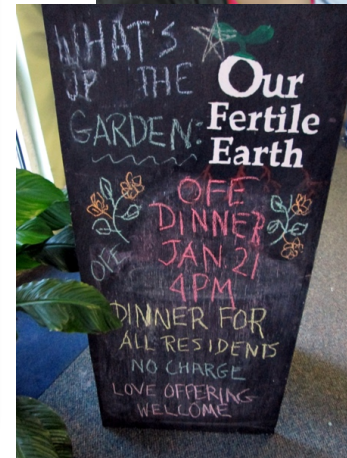 WHAT'S
UP THE
GARDEN:
Our
Fertile
Earth
OFE
DINNER
JAN. 21
4PM
OFE
DINNER FOR
ALL RESIDENTS
NO CHARGE
LOVE OFFERING
WELCOME